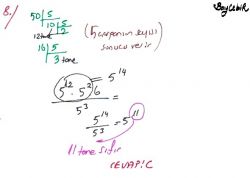 BayÇınar
8./
50 | 5
10 | 5
2
12 tane
16 | 5
3 tane
(5 çarpanın sayısı
sonucu verir)
5¹² · 5² 6 = 5¹⁴
5³
5¹⁴ / 5³ = 5¹¹
11 tane sıfır
CEVAP: C